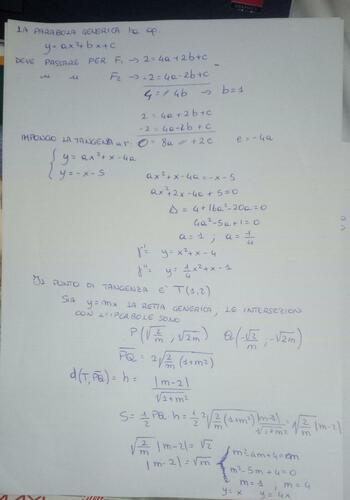 LA PARABOLA GENERICA ha eq.
y=ax²+bx+c
DEVE PASSARE PER F₁ → 2=4a+2b+c
" " F₂ → -2=4a-2b+c
4=/4b → b=1
2=4a+2b+c
-2=4a-2b+c
0=8a+2c c=-4a
IMPONGO LA TANGENZA
{ y=ax²+x-4a
{ y=-x-5
ax²+x-4a=-x-5
ax²+2x-4a+5=0
Δ=4+16a²-20a=0
4a²-5a+1=0
a=1 ; a=1/4
γ' = y=x²+x-4
γ'' = y=1/4x²+x-1
PUNTO DI TANGENZA È T(1,2)
SIA y=mx LA RETTA GENERICA, LE INTERSEZIONI
CON L'IPERBOLE SONO
P(√(2/m), √2m) Q(-√(2/m), -√2m)
PQ = 2√(2/m (1+m²))
d(T,PQ)=h= |m-2|/√(1+m²)
S=1/2 PQ·h=1/2 2√(2/m (1+m²)) |m-2|/√(1+m²)=√(2/m)|m-2|
√(2/m) |m-2|=√2
|m-2|=√m
m²-4m+4=m
m²-5m+4=0
m=1, m=4
y=x y=4x